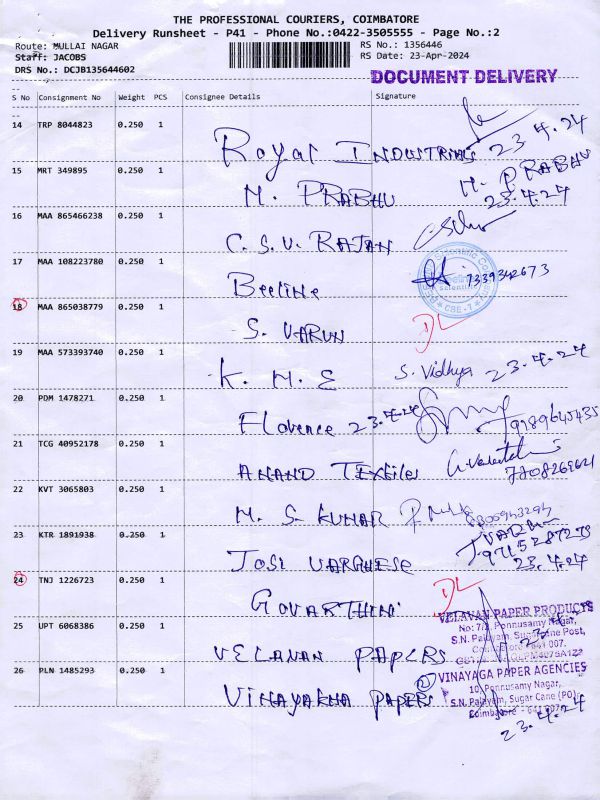 THE PROFESSIONAL COURIERS, COIMBATORE
Delivery Runsheet - P41 - Phone No.:0422-3505555 - Page No.:2
Route: MULLAI NAGAR
Staff: JACOBS
DRS No.: DCJB135644602
RS No.: 1356446
RS Date: 23-Apr-2024
DOCUMENT DELIVERY
S No Consignment No Weight PCS Consignee Details Signature
14 TRP 8044823 0.250 1 Royal Industries 23.4.24
15 MRT 349895 0.250 1 M. PRABHU M. PRABHU 23.4.24
16 MAA 865466238 0.250 1 C.S.V. RAJAN
17 MAA 108223780 0.250 1 Beeline 7339342673
18 MAA 865038779 0.250 1 S. VARUN DL
19 MAA 573393740 0.250 1 K. M. E S. Vidhya 23.4.24
20 PDM 1478271 0.250 1 Florence 23.4.24 9789645435
21 TCG 40952178 0.250 1 ANAND Textiles
22 KVT 3065803 0.250 1 M. S. KUMAR
23 KTR 1891938 0.250 1 JOSI VARGHESE 23.4.24
24 TNJ 1226723 0.250 1 GOVARTHINI DL
25 UPT 6068386 0.250 1 VELAVAN PAPERS
VELAVAN PAPER PRODUCTS
No: 7/2, Ponnusamy Nagar,
S.N. Palayam, Sugarcane Post,
Coimbatore - 641 007.
26 PLN 1485293 0.250 1 VINAYAKHA PAPERS
VINAYAGA PAPER AGENCIES
10, Ponnusamy Nagar,
S.N. Palayam, Sugar Cane (PO),
Coimbatore - 641 007.
23.4.24